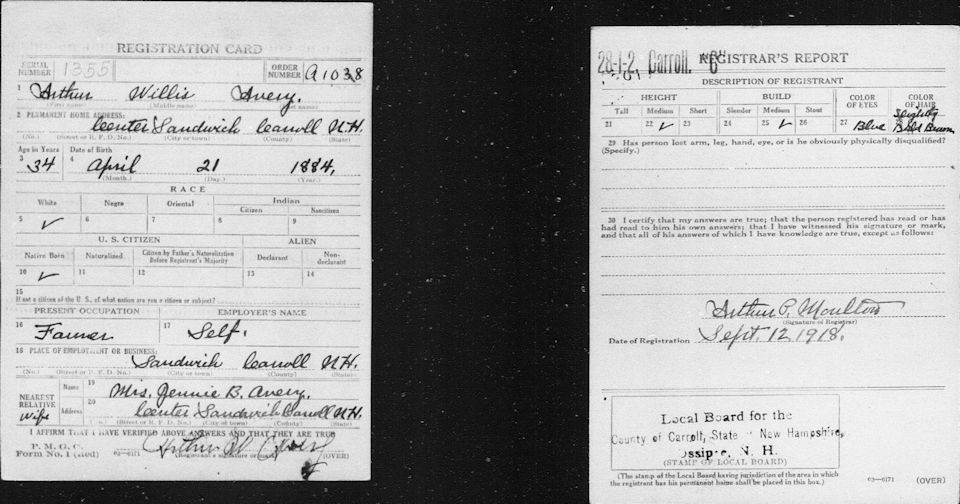 REGISTRATION CARD
SERIAL NUMBER 1355 ORDER NUMBER A1038
1 Arthur Willis Avery.
(First name) (Middle name) (Last name)
2 PERMANENT HOME ADDRESS:
Center Sandwich Carroll N.H.
(No.) (Street or R. F. D. No.) (City or town) (County) (State)
Age in Years Date of Birth
3 34 4 April 21 1884,
(Month.) (Day.) (Year.)
RACE
White Negro Oriental Indian
Citizen Noncitizen
5 ✓ 6 7 8 9
U. S. CITIZEN ALIEN
Native Born Naturalized Citizen by Father's Naturalization Before Registrant's Majority Declarant Non-declarant
10 ✓ 11 12 13 14
15
If not a citizen of the U. S., of what nation are you a citizen or subject?
PRESENT OCCUPATION EMPLOYER'S NAME
16 Farmer 17 Self.
18 PLACE OF EMPLOYMENT OR BUSINESS:
Sandwich Carroll N.H.
(No.) (Street or R. F. D. No.) (City or town) (County) (State)
NEAREST RELATIVE Wife Name 19 Mrs. Jennie B. Avery.
Address 20 Center Sandwich Carroll N.H.
(No.) (Street or R. F. D. No.) (City or town) (County) (State)
I AFFIRM THAT I HAVE VERIFIED ABOVE ANSWERS AND THAT THEY ARE TRUE
P. M. G. O.
Form No. 1 (Red) 03—6171 Arthur W Avery
(Registrant's signature or mark) (OVER)
28-1-2. Carroll. "C" REGISTRAR'S REPORT
DESCRIPTION OF REGISTRANT
HEIGHT BUILD COLOR OF EYES COLOR OF HAIR
Tall Medium Short Slender Medium Stout
21 22 ✓ 23 24 25 ✓ 26 27 Blue 28 Slightly Bald Brown
29 Has person lost arm, leg, hand, eye, or is he obviously physically disqualified?
(Specify.)
30 I certify that my answers are true; that the person registered has read or has
had read to him his own answers; that I have witnessed his signature or mark,
and that all of his answers of which I have knowledge are true, except as follows:
Arthur P. Moulton
(Signature of Registrar)
Date of Registration Sept. 12 1918.
Local Board for the
County of Carroll, State of New Hampshire,
Ossipee, N. H.
(STAMP OF LOCAL BOARD)
(The stamp of the Local Board having jurisdiction of the area in which
the registrant has his permanent home shall be placed in this box.) 03—6171 (OVER)